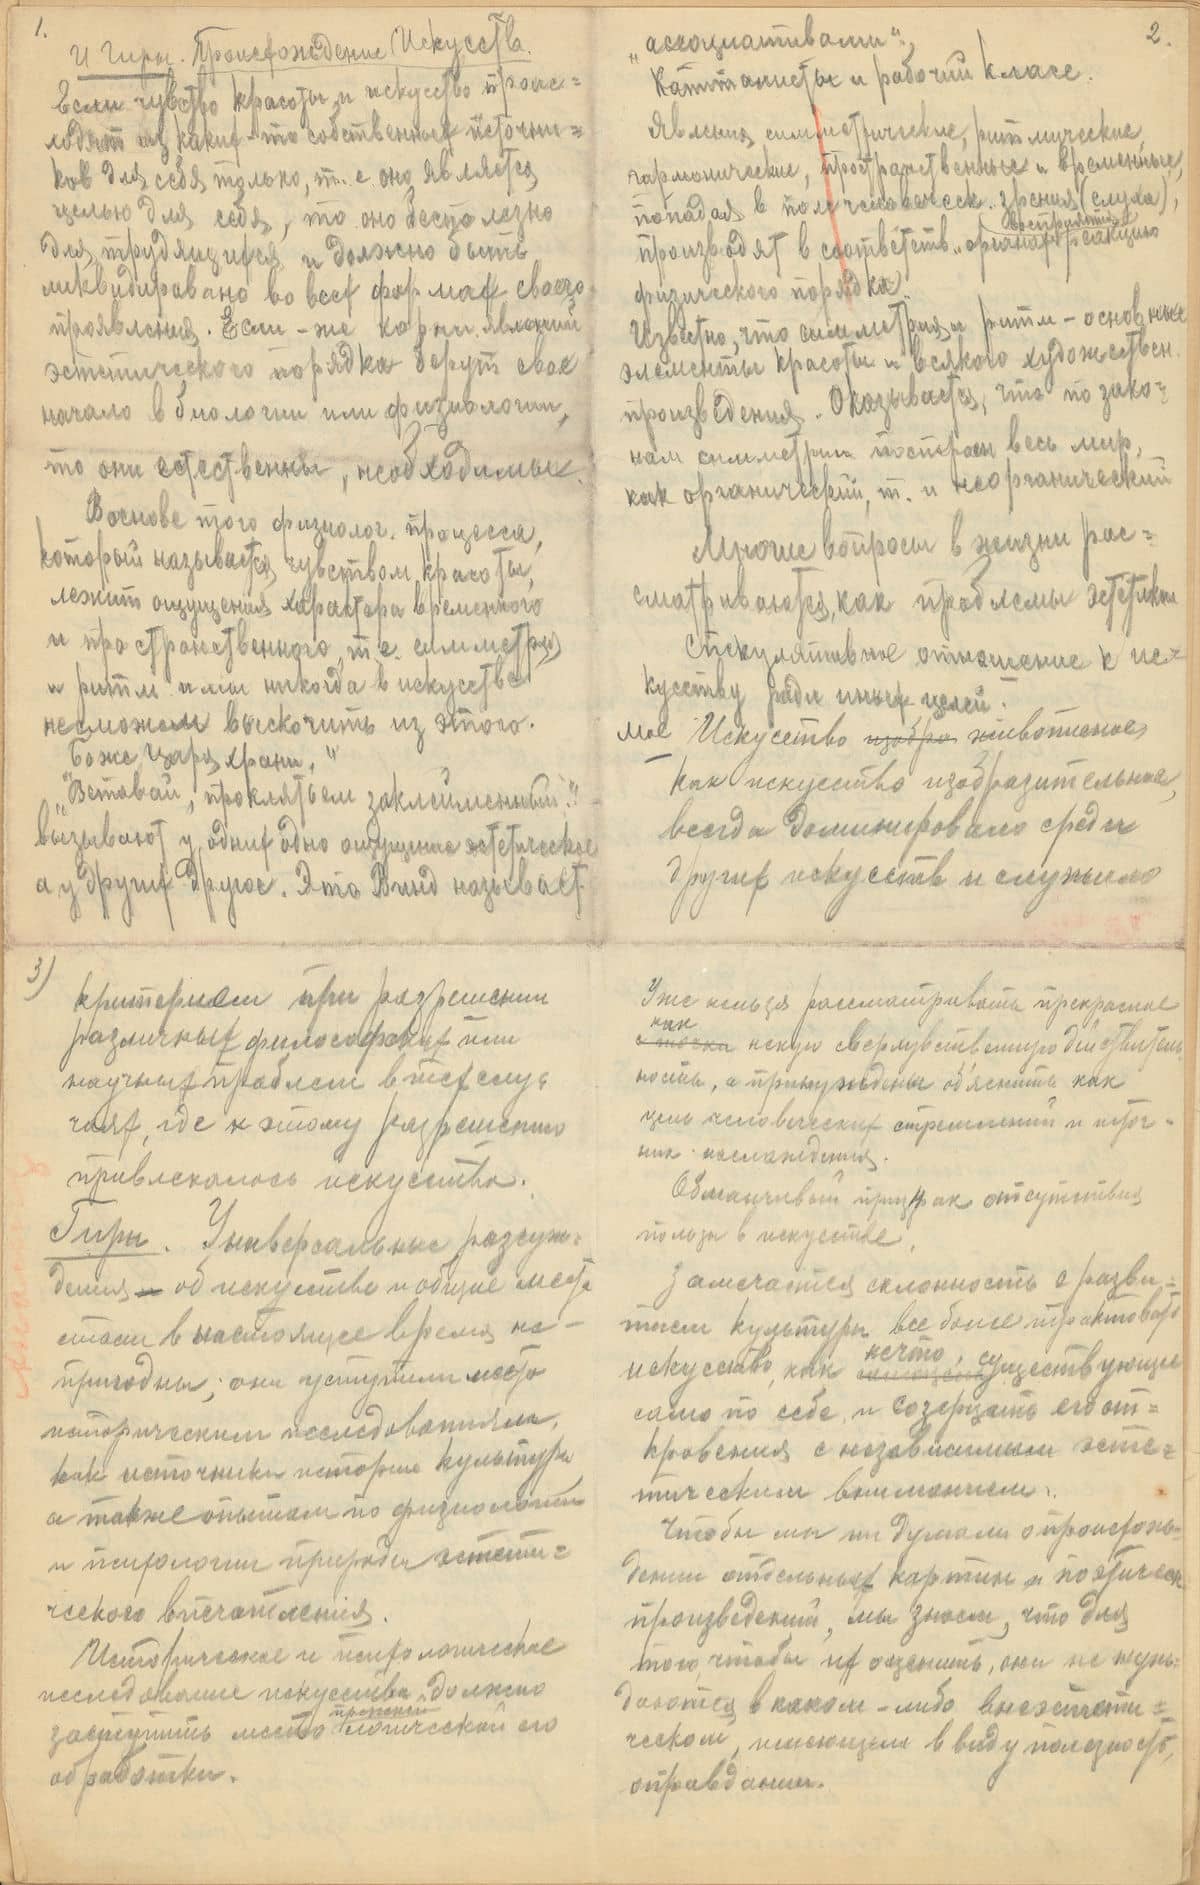 1.
И Гирн. Происхождение Искусства.
Если чувство красоты и искусство проис=
ходят из каких-то собственных источни=
ков для себя только, т. е оно является
целью для себя, то оно бесполезно
для трудящихся и должно быть
ликвидировано во всех формах своего
проявления. Если-же корни явлений
эстетического порядка берут свое
начало в биологии или физиологии,
то они естественны, необходимы.
В основе того физиолог. процесса,
который называется чувством красоты,
лежит ощущения характера временного
и пространственного, т.е. симметрия
и ритм и мы никогда в искусстве
не сможем выскочить из этого.
"Боже Царя храни,"
"Вставай, проклятьем заклейменный."
вызывают у одних одно ощущение эстетическое
а у других другое. Это Вунд называет
2.
"ассоциативами".
Капиталисты и рабочий класс.
Явления симметрические, ритмические,
гармонические, пространственные и временные,
попадая в поле человеческ. зрения (слуха),
восприятия
производят в соответств. органах реакцию
физического порядка.
Известно, что симметрия и ритм - основные
элементы красоты и всякого художествен.
произведения. Оказывается, что по зако=
нам симметрии построен весь мир,
как органический, т. и неорганический
Многие вопросы в жизни рас=
сматриваются, как проблемы эстетики
Спекулятивное отношение к ис=
кусству ради иных целей.
мое Искусство изобра живописное,
как искусство изобразительное,
всегда доминировало среди
других искусств и служило
3)
критерием при разрешении
различных философских или
научных проблем в тех слу=
чаях, где к этому разрешению
привлекалось искусство.
Гирн. Универсальные рассуж=
дения об искусстве и общие места
стали в настоящее время не-
пригодны; они уступили место
историческим исследованиям,
как источники истории культуры
а также опытам по физиологии
и психологии природы эстети=
ческого впечатления.
Историческое и психологическое
исследование искусства должно
прежней
заступить место логической его
обработки.
Уже нельзя рассматривать прекрасное
как
с точки некую сверхчувственную действитель
ность, а принуждены об'яснить как
цель человеческих стремлений и источ-
ник наслаждения.
Обманчивый призрак отсутствия
пользы в искусстве.
Замечается склонность с разви=
тием культуры все более трактовать
нечто,
искусство, как существующее
само по себе, и созерцать его от=
кровения с независимым эсте=
тическим вниманием.
Чтобы мы ни думали о происхож-
дении отдельных картин и поэтическ
произведений, мы знаем, что для
того, чтобы их оценить, они не нуж-
даются в каком-либо внеэстети=
ческом, имеющем в виду полезность,
оправдании.